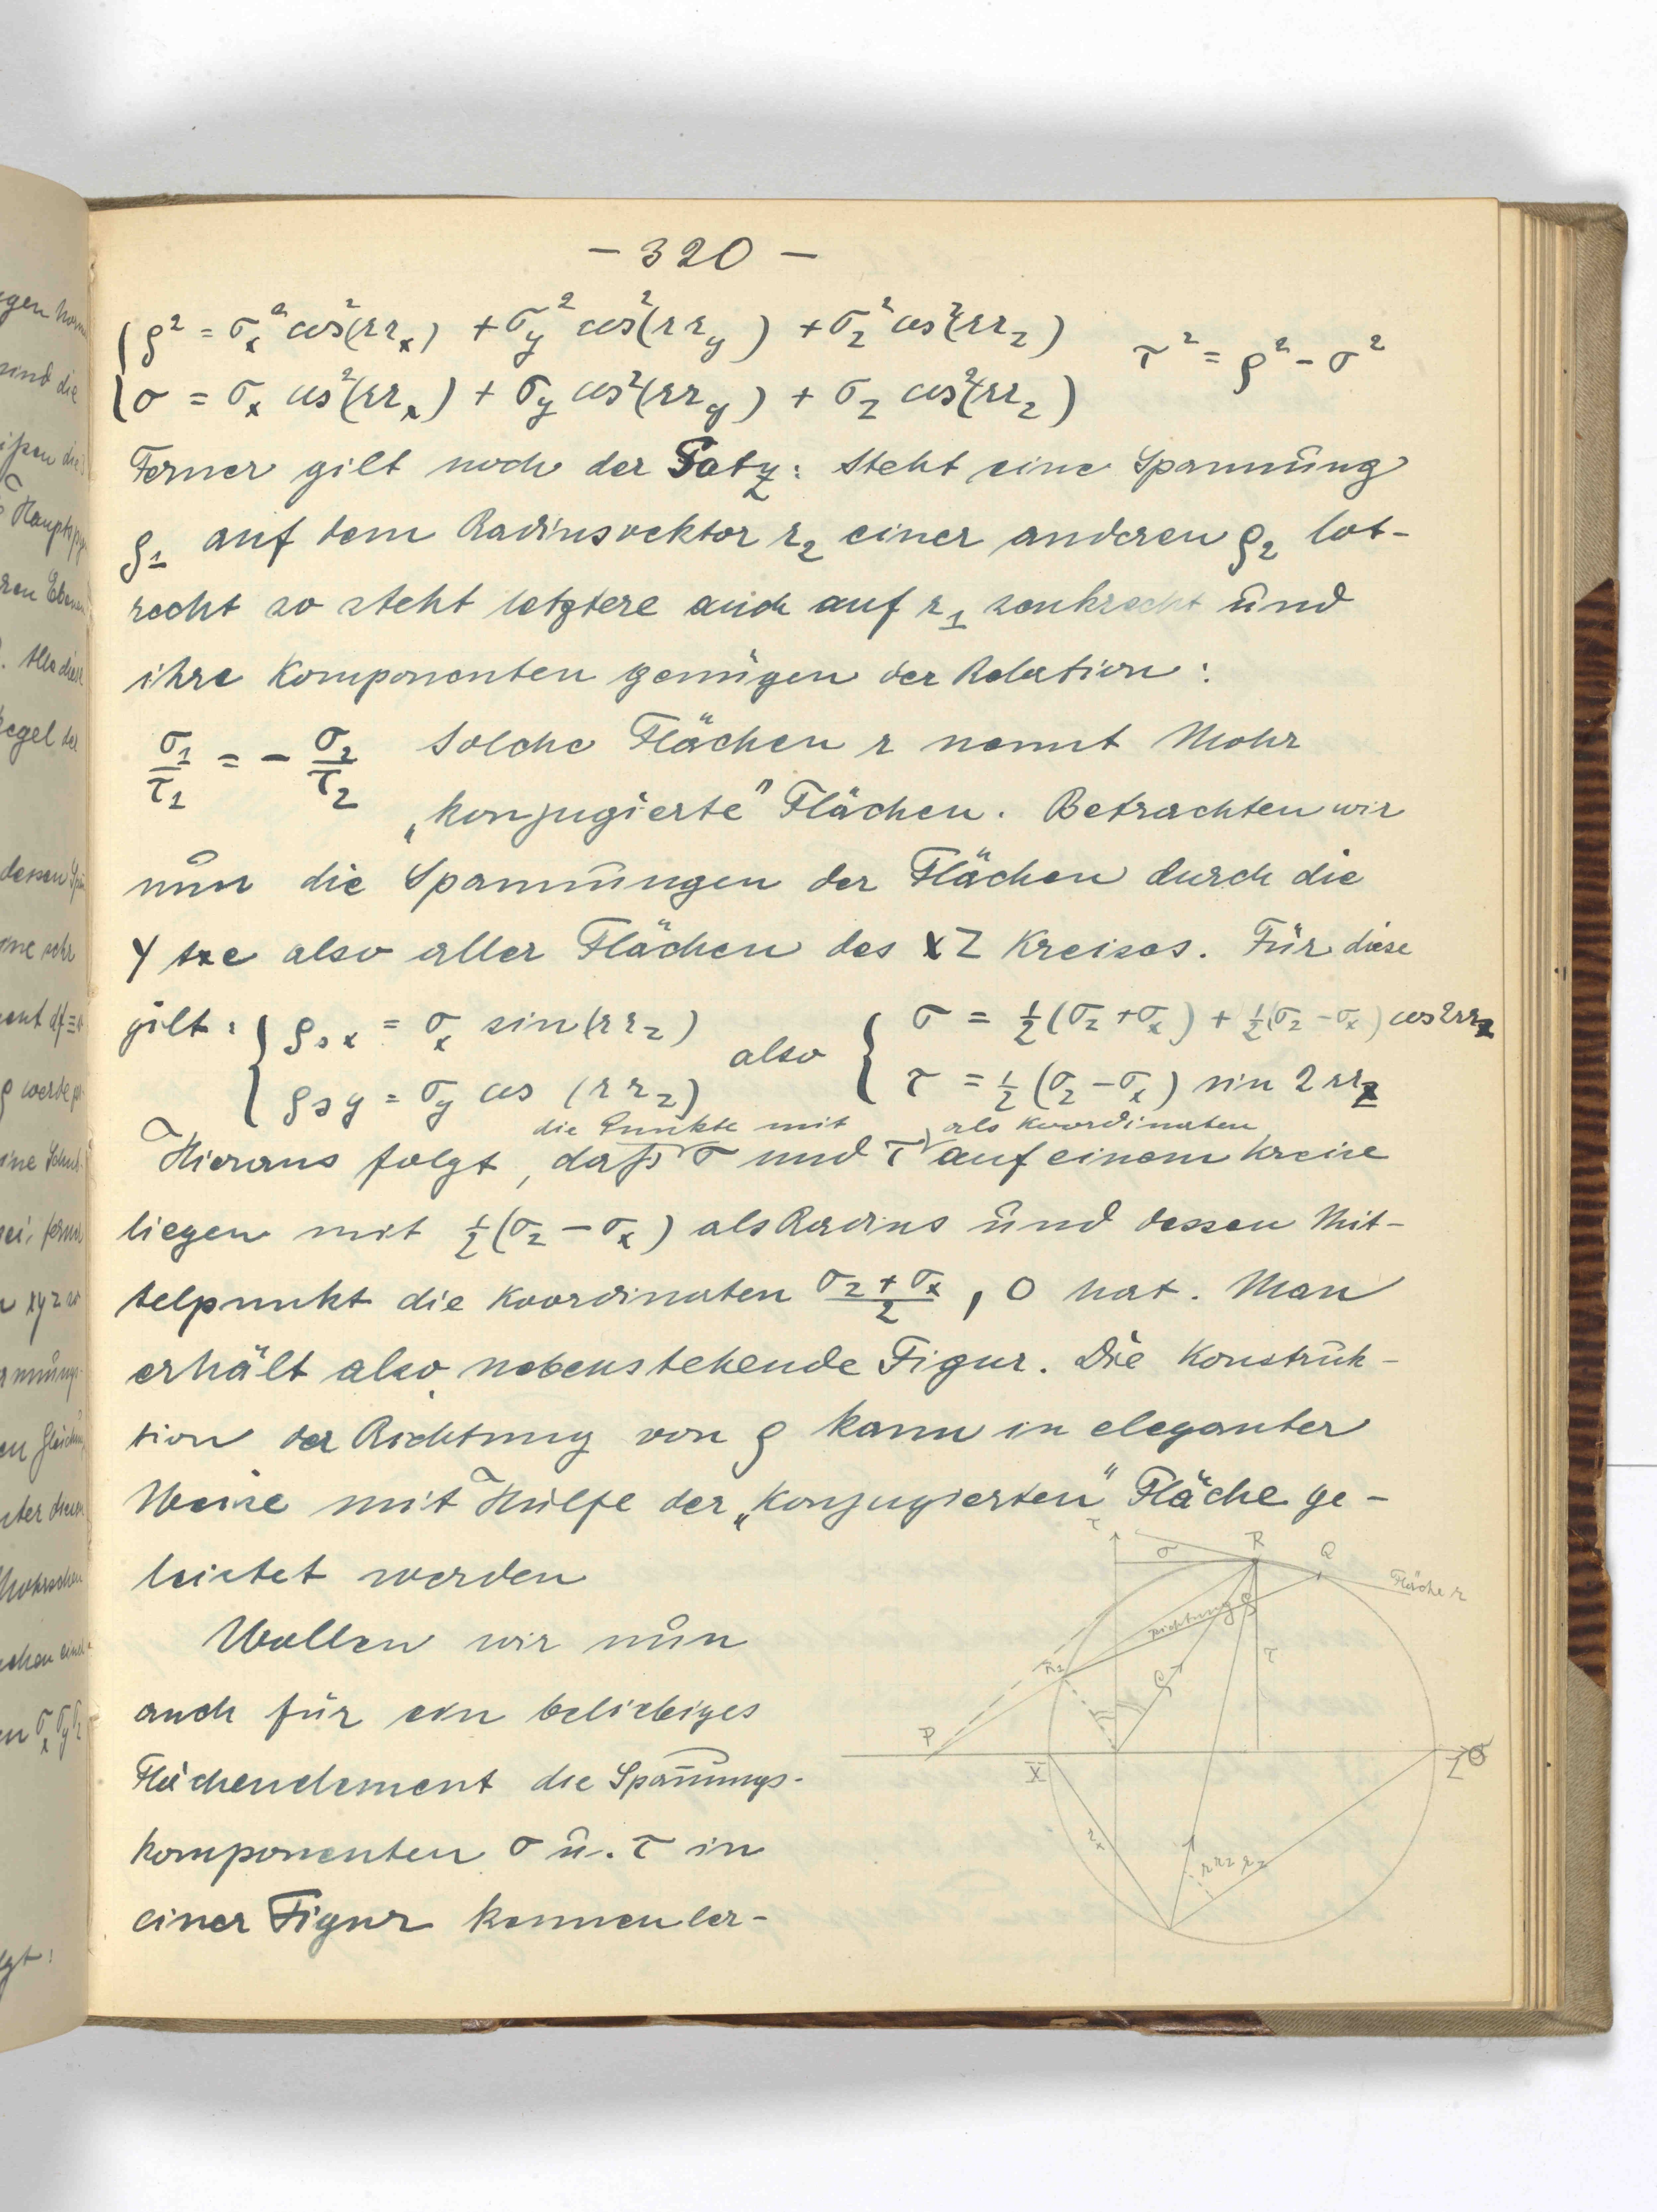 – 320 –
ρ² = σx² cos²(rrx) + σy² cos²(rry) + σz² cos²(rrz)    τ² = ρ² – σ²
σ = σx cos²(rrx) + σy cos²(rry) + σz cos²(rrz)
Ferner gilt noch der Satz: Steht eine Spannung
ρ1 auf dem Radiusvektor r2 einer anderen ρ2 lot-
recht so steht letztere auch auf r1 senkrecht und
ihre Komponenten genügen der Relation:
σ1/τ1 = – σ2/τ2    Solche Flächen r nennt Mohr
„konjugierte“ Flächen. Betrachten wir
nun die Spannungen der Flächen durch die
Y axe also aller Flächen des XZ Kreises. Für diese
gilt: { ρsx = σx sin(rrz)    also { σ = ½(σz + σx) + ½(σz – σx) cos 2rrz
ρsy = σy cos (rrz)    τ = ½(σz – σx) sin 2 rrz
die Punkte mit    als Koordinaten
Hieraus folgt, daß σ und τ auf einem Kreise
liegen mit ½(σz – σx) als Radius und dessen Mit-
telpunkt die Koordinaten (σz + σx)/2 , 0 hat. Man
erhält also nebenstehende Figur. Die Konstruk-
tion der Richtung von ρ kann in eleganter
Weise mit Hülfe der „konjugierten“ Fläche ge-
leistet werden
Wollen wir nun
auch für ein beliebiges
Flächenelement die Spannungs-
komponenten σ u. τ in
einer Figur kennen ler-
τ
σ
R
Q
Fläche r
Richtung ρ
ρ
τ
P
X
Z
σ
rx
rrz
rz